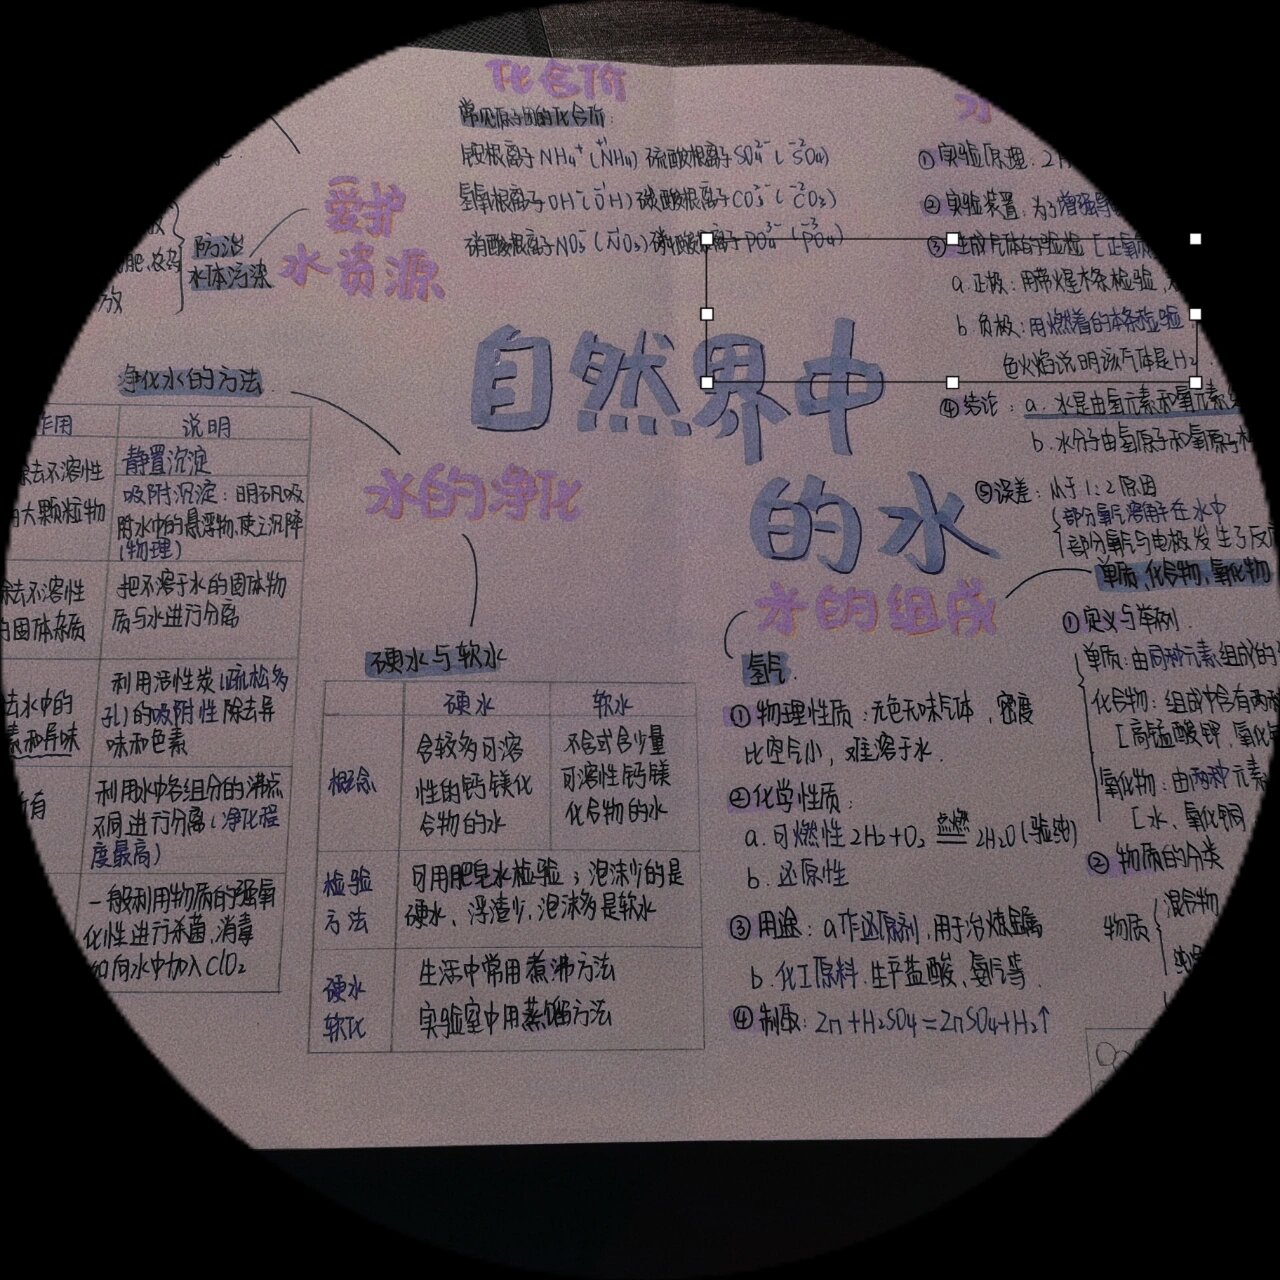 化合价
常见原子团的化合价
铵根离子NH₄⁺(N⁺¹H₄) 硫酸根离子SO₄²⁻(S⁻²O₄)
氢氧根离子OH⁻(O⁻¹H) 碳酸根离子CO₃²⁻(C⁻²O₃)
硝酸根离子NO₃⁻(N⁻¹O₃) 磷酸根离子PO₄³⁻(P⁻³O₄)
爱护
水资源
防治
水体污染
肥、农药
放
自然界中
的水
净化水的方法
作用 说明
除去不溶性
大颗粒物
静置沉淀
吸附沉淀:明矾吸
附水中的悬浮物,使之沉降
(物理)
除去不溶性
固体杂质
把不溶于水的固体物
质与水进行分离
去水中的
素和异味
利用活性炭(疏松多
孔)的吸附性除去异
味和色素
所有
利用水中各组分的沸点
不同进行分离(净化程
度最高)
一般利用物质的强氧
化性进行杀菌,消毒
如向水中加入ClO₂
水的净化
硬水与软水
硬水 软水
概念
含较多可溶
性的钙镁化
合物的水
不含或含少量
可溶性钙镁
化合物的水
检验
方法
可用肥皂水检验;泡沫少的是
硬水、浮渣少,泡沫多是软水
硬水
软化
生活中常用煮沸方法
实验室中用蒸馏方法
水的组成
氢气
①物理性质:无色无味气体,密度
比空气小,难溶于水.
②化学性质:
a.可燃性 2H₂+O₂ 点燃 2H₂O(验纯)
b.还原性
③用途:a作还原剂,用于冶炼金属
b.化工原料.生产盐酸、氨气等.
④制取:Zn+H₂SO₄=ZnSO₄+H₂↑
①实验原理:2
②实验装置:为了增强导
③生成气体的检验[正氧
a.正极:用带火星木条检验,
b.负极:用燃着的木条检验
色火焰说明该气体是H₂
④结论:a.水是由氢元素和氧元素
b.水分子由氢原子和氧原子
⑤误差:小于1:2原因
部分氧气溶解在水中
部分氧气与电极发生了反
单质,化合物,氧化物
①定义与举例
单质:由同种元素组成的
化合物:组成中含有两种
[高锰酸钾,氧化
氧化物:由两种元素
[水、氧化铜
②物质的分类
物质
混合物